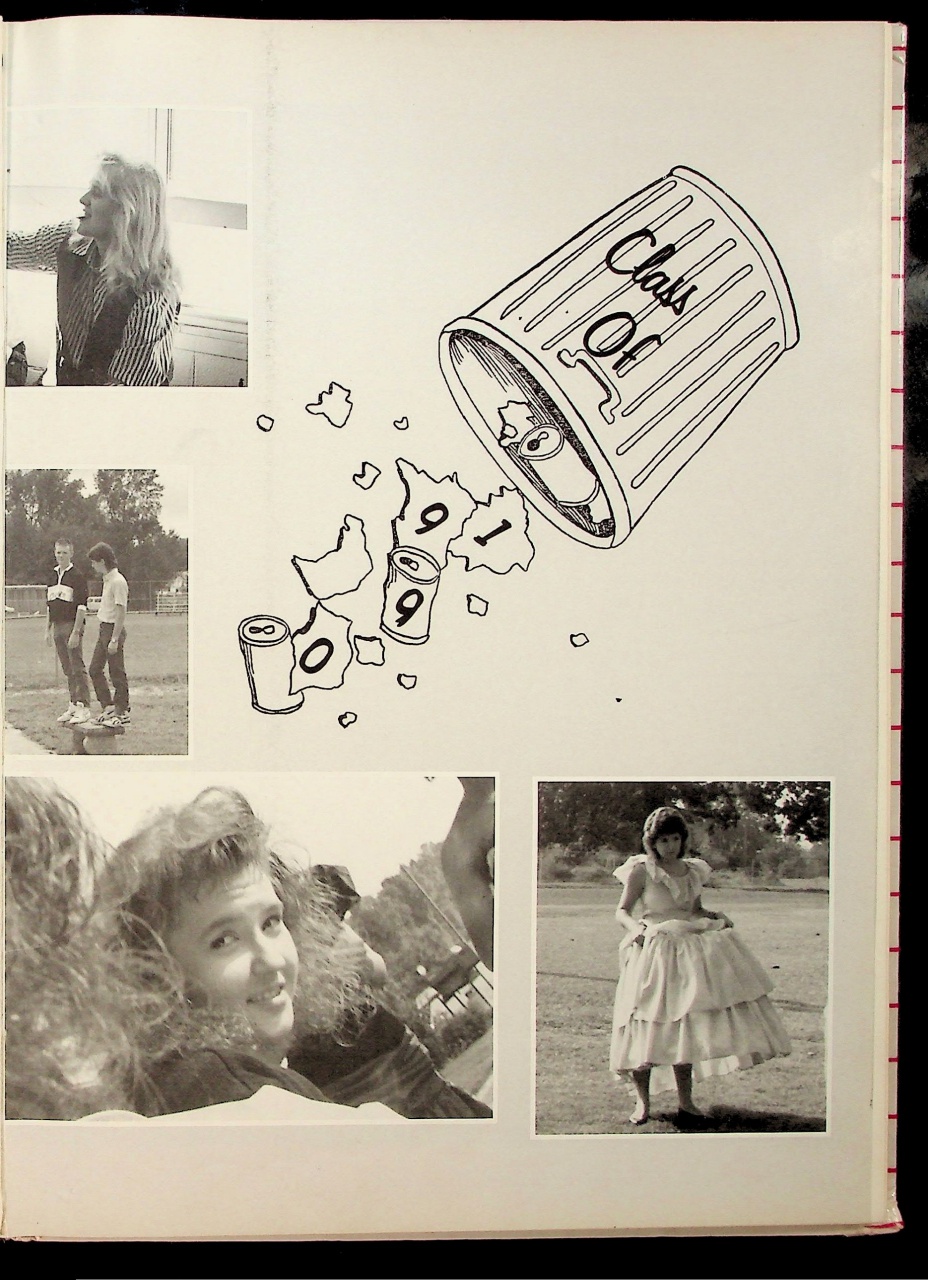 Class
Of
1 9 9 0